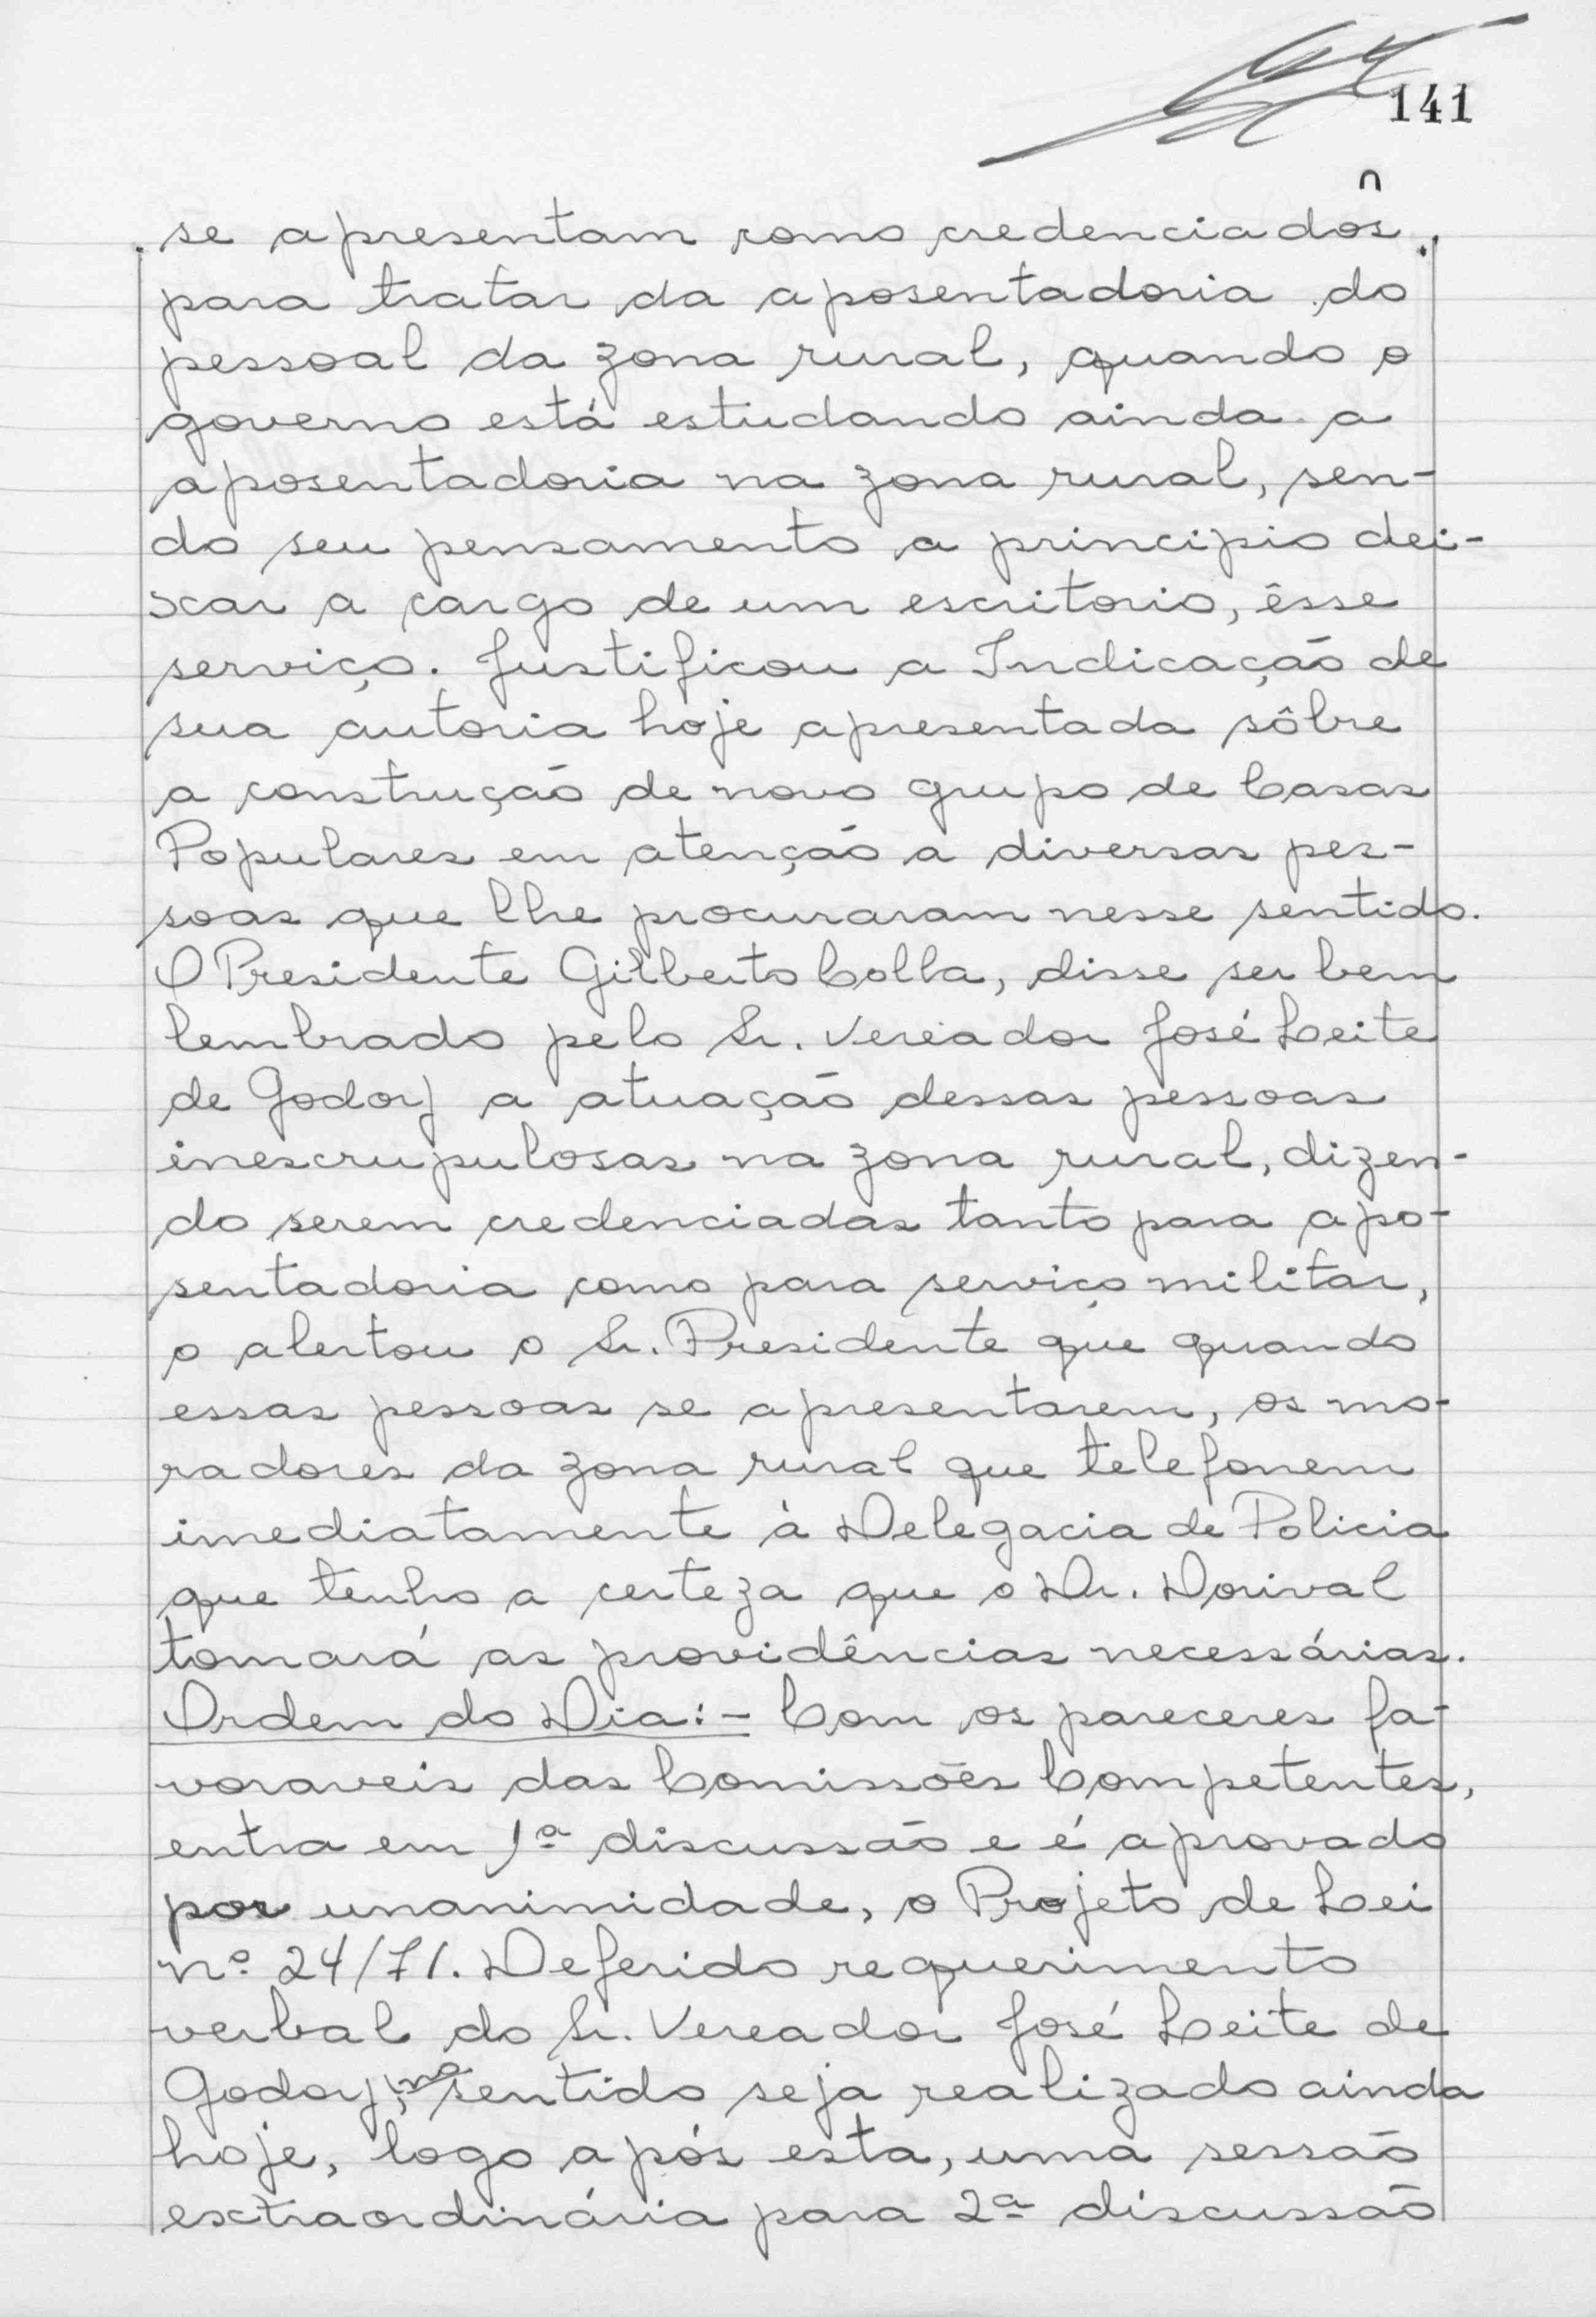 141
se apresentam como credenciados
para tratar da aposentadoria do
pessoal da zona rural, quando o
governo está estudando ainda a
aposentadoria na zona rural, sen-
do seu pensamento a principio dei-
xar a cargo de um escritorio, êsse
serviço. Justificou a Indicação de
sua autoria hoje apresentada sôbre
a construção de novo grupo de Casas
Populares em atenção a diversas pes-
soas que lhe procuraram nesse sentido.
O Presidente Gilberto Colla, disse ser bem
lembrado pelo Sr. Vereador José Leite
de Godoy a atuação dessas pessoas
inescrupulosas na zona rural, dizen-
do serem credenciadas tanto para apo-
sentadoria como para serviço militar,
o alertou o Sr. Presidente que quando
essas pessoas se apresentarem, os mo-
radores da zona rural que telefonem
imediatamente à Delegacia de Policia
que tenho a certeza que o Dr. Dorival
tomará as providências necessárias.
Ordem do Dia:- Com os pareceres fa-
voraveis das Comissões Competentes,
entra em 1ª discussão e é aprovado
por unanimidade, o Projeto de Lei
nº 24/71. Deferido requerimento
verbal do Sr. Vereador José Leite de
Godoy, no sentido seja realizado ainda
hoje, logo após esta, uma sessão
extraordinária para 2ª discussão